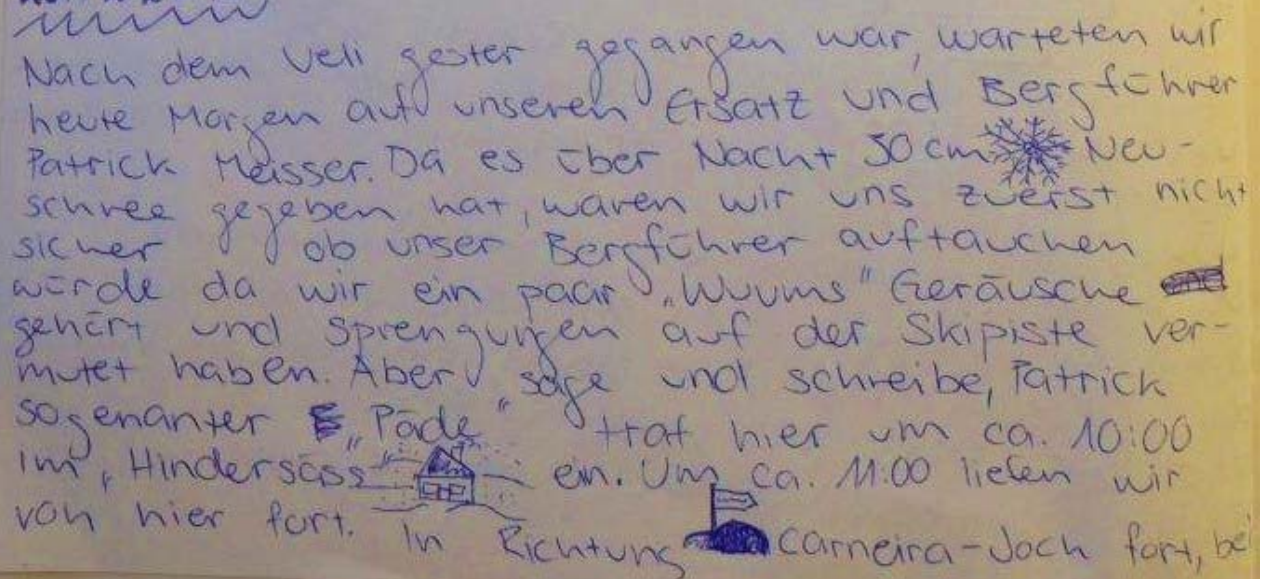 Nach dem Veli gester gegangen war, warteten wir
heute Morgen auf unseren Ersatz und Bergführer
Patrick Meisser. Da es über Nacht 30 cm Neu-
schnee gegeben hat, waren wir uns zuerst nicht
sicher ob unser Bergführer auftauchen
würde da wir ein paar „Wuums" Geräusche
gehört und Sprengungen auf der Skipiste ver-
mutet haben. Aber sage und schreibe, Patrick
sogenanter „Päde" traf hier um ca. 10:00
im „Hindersäss" ein. Um ca. 11:00 liefen wir
von hier fort. In Richtung Carneira-Joch fort, bei